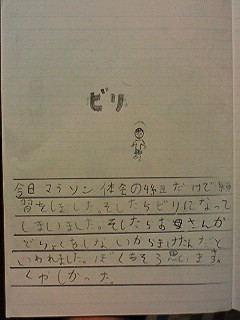 ビリ
今日マラソン体会の4年生だけで練
習をしました。そしたらビリになって
しまいました。そしたらお母さんが
どりょくをしないからまけたんだと
いわれました。ぼくもそう思います。
くやしかった。